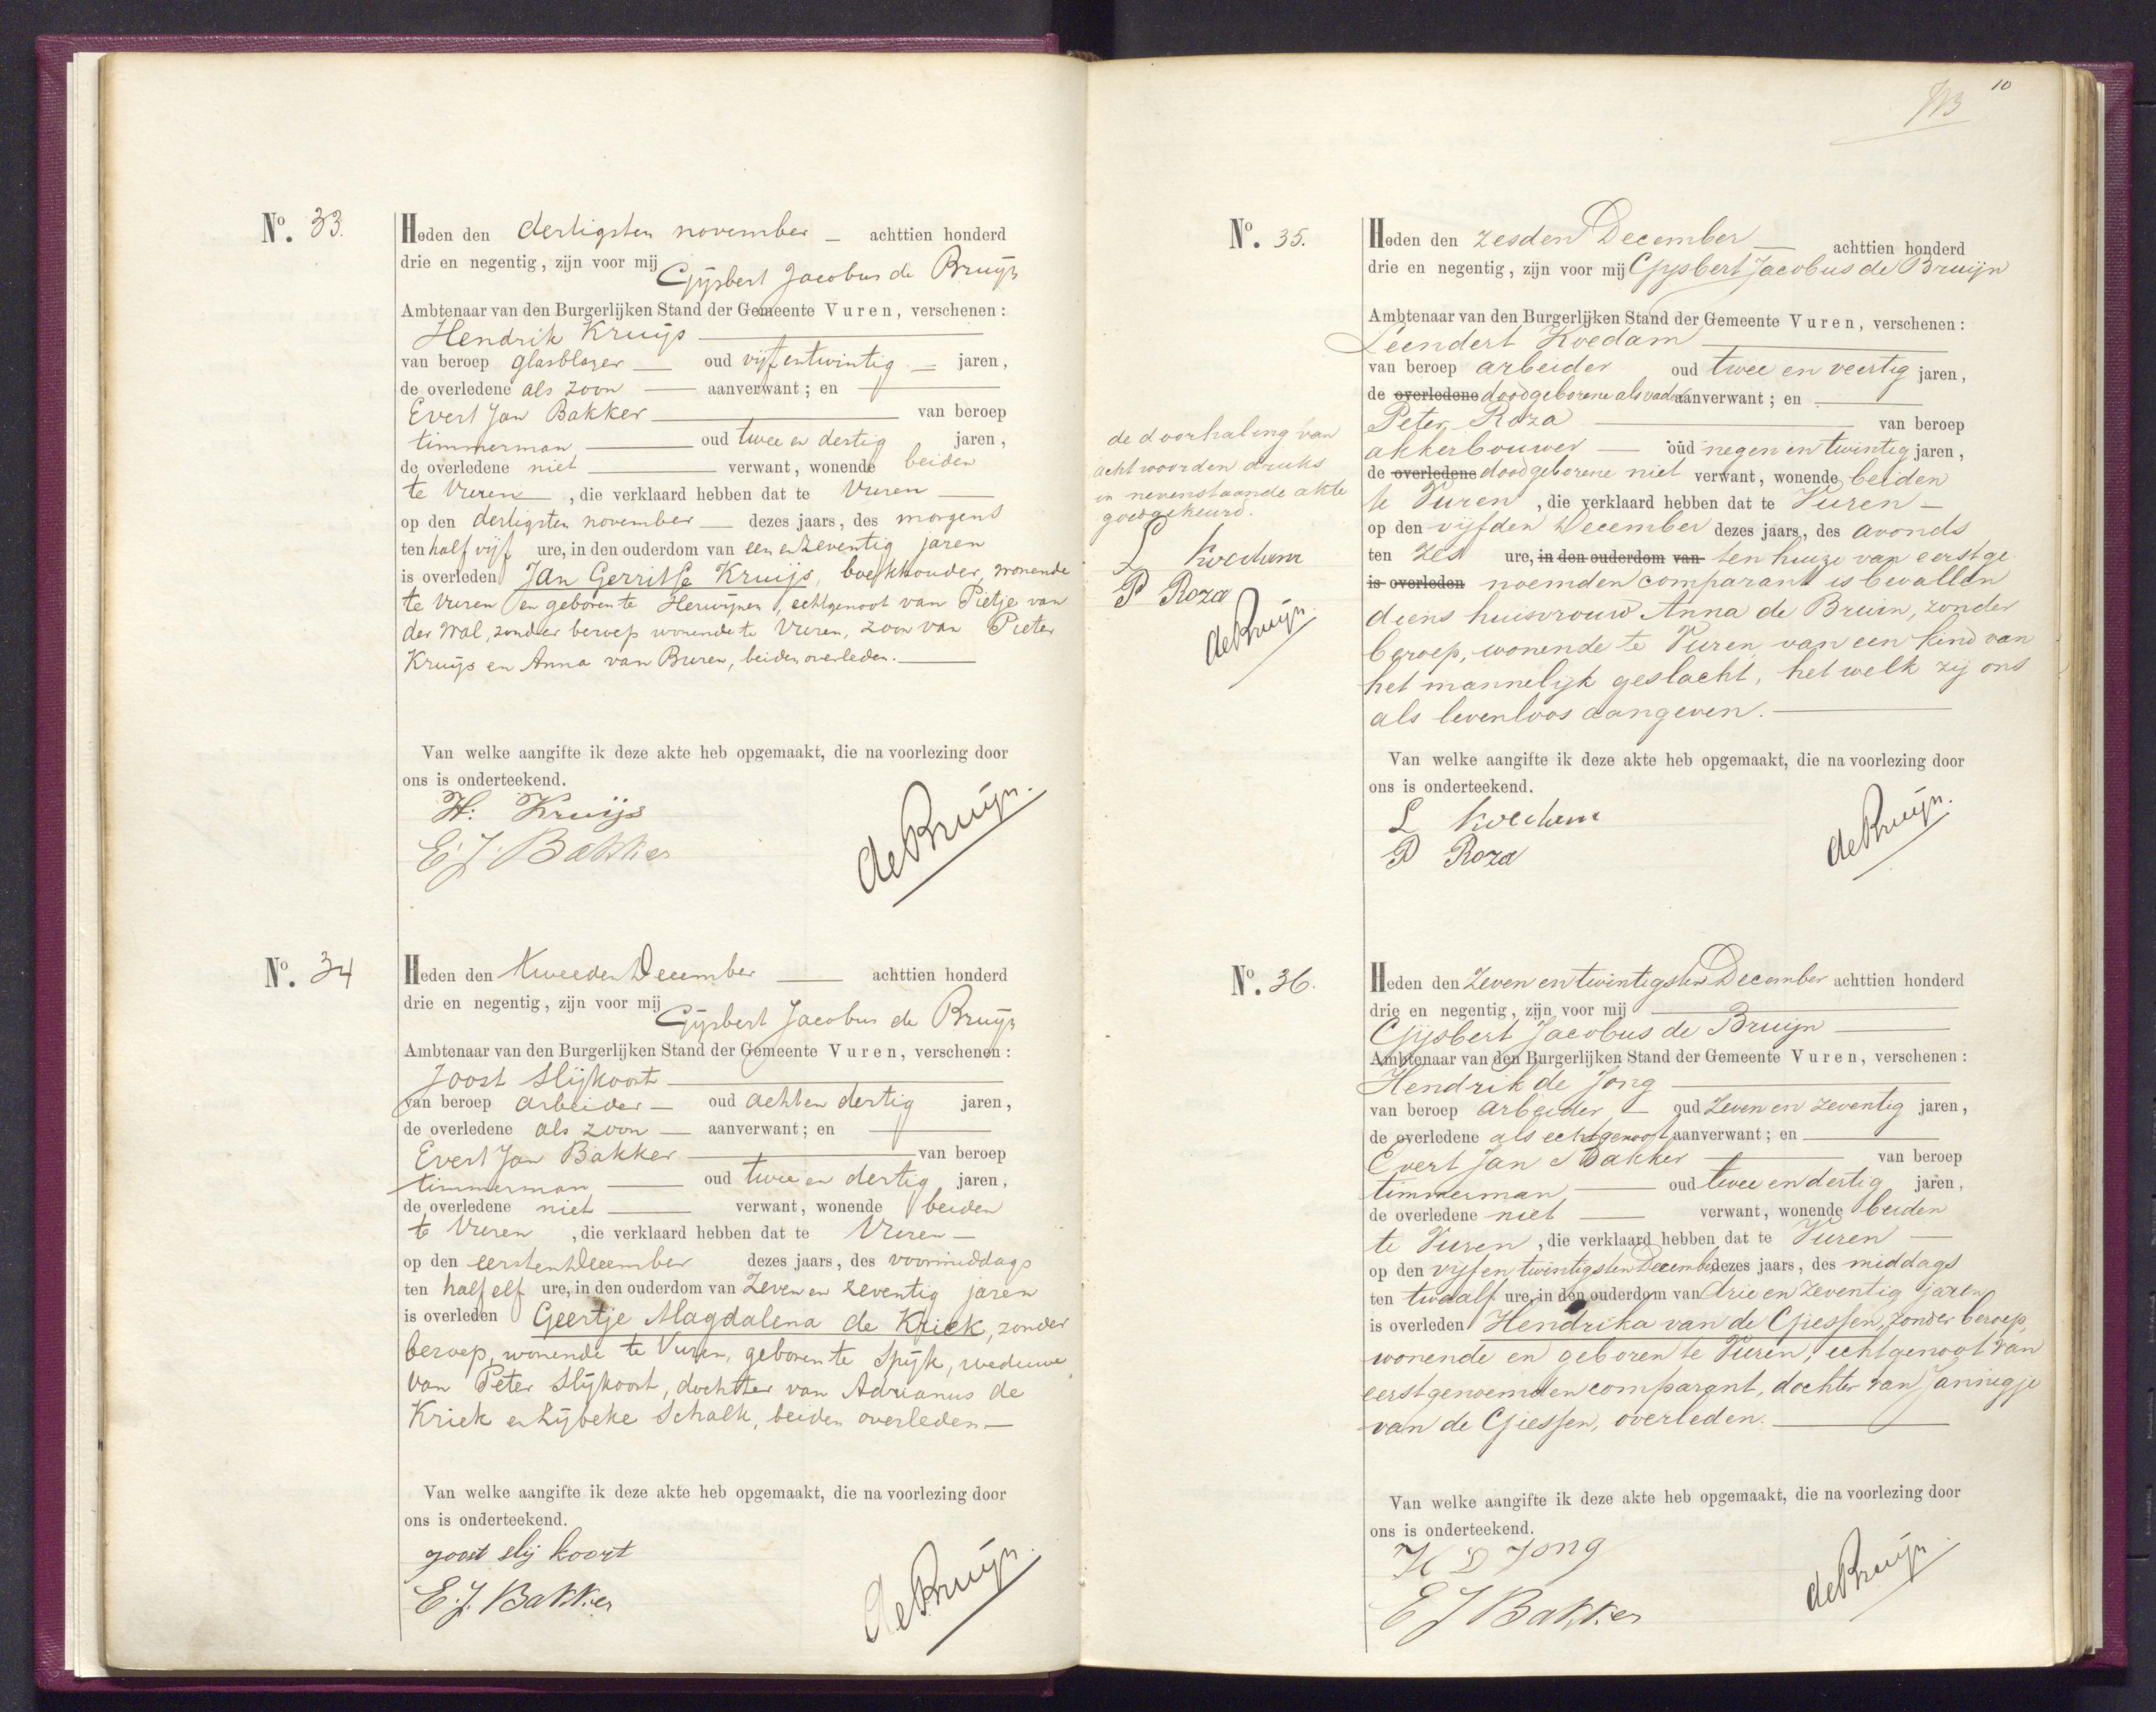 No. 33.
Heden den dertigsten november — achttien honderd
drie en negentig, zijn voor mij Gijsbert Jacobus de Bruijn
Ambtenaar van den Burgerlijken Stand der Gemeente Vuren, verschenen:
Hendrik Kruijs
van beroep glasblazer — oud vijf en twintig — jaren,
de overledene als zoon — aanverwant; en —
Evert Jan Bakker — van beroep
timmerman — oud twee en dertig jaren,
de overledene niet — verwant, wonende beiden
te Vuren —, die verklaard hebben dat te Vuren —
op den dertigsten november — dezes jaars, des morgens
ten half vijf ure, in den ouderdom van een en zeventig jaren
is overleden Jan Gerritse Kruijs, boekhouder, wonende
te Vuren en geboren te Herwijnen, echtgenoot van Pietje van
der Wal, zonder beroep wonende te Vuren, zoon van Pieter
Kruijs en Anna van Buren, beiden overleden. —
Van welke aangifte ik deze akte heb opgemaakt, die na voorlezing door
ons is onderteekend.
H: Kruijs
E. J. Bakker
de Bruijn.
No. 34
Heden den tweeden December — achttien honderd
drie en negentig, zijn voor mij Gijsbert Jacobus de Bruijn
Ambtenaar van den Burgerlijken Stand der Gemeente Vuren, verschenen:
Joost Slijkoort
van beroep arbeider — oud acht en dertig jaren,
de overledene als zoon — aanverwant; en —
Evert Jan Bakker — van beroep
timmerman — oud twee en dertig jaren,
de overledene niet — verwant, wonende beiden
te Vuren, die verklaard hebben dat te Vuren —
op den eersten December dezes jaars, des voormiddags
ten half elf ure, in den ouderdom van zeven en zeventig jaren
is overleden Geertje Magdalena de Kriek, zonder
beroep, wonende te Vuren, geboren te Spijk, weduwe
van Peter Slijkoort, dochter van Adrianus de
Kriek en Lijbeke Schalk, beiden overleden —
Van welke aangifte ik deze akte heb opgemaakt, die na voorlezing door
ons is onderteekend.
joost slij koort
E. J. Bakker
de Bruijn.
10
No. 35.
Heden den zesden December — achttien honderd
drie en negentig, zijn voor mij Gijsbert Jacobus de Bruijn
Ambtenaar van den Burgerlijken Stand der Gemeente Vuren, verschenen:
Leendert Koedam
van beroep arbeider oud twee en veertig jaren,
de overledene doodgeborene als vader aanverwant; en —
Peter Roza — van beroep
akkerbouwer — oud negen en twintig jaren,
de overledene doodgeborene niet verwant, wonende beiden
te Vuren, die verklaard hebben dat te Vuren —
op den vijfden December dezes jaars, des avonds
ten zes ure, in den ouderdom van ten huize van eerstge
is overleden noemden comparant is bevallen
diens huisvrouw Anna de Bruin, zonder
beroep, wonende te Vuren van een kind van
het mannelijk geslacht, het welk zij ons
als levenloos aangeven. —
de doorhaling van
acht woorden druks
in nevenstaande akte
goedgekeurd.
L Koedam
P Roza
de Bruijn.
Van welke aangifte ik deze akte heb opgemaakt, die na voorlezing door
ons is onderteekend.
L Koedam
P Roza
de Bruijn.
No. 36.
Heden den zeven en twintigsten December achttien honderd
drie en negentig, zijn voor mij —
Gijsbert Jacobus de Bruijn —
Ambtenaar van den Burgerlijken Stand der Gemeente Vuren, verschenen:
Hendrik de Jong —
van beroep arbeider — oud zeven en zeventig jaren,
de overledene als echtgenoot aanverwant; en —
Evert Jan Bakker — van beroep
timmerman — oud twee en dertig jaren,
de overledene niet — verwant, wonende beiden
te Vuren, die verklaard hebben dat te Vuren —
op den vijf en twintigsten December dezes jaars, des middags
ten twaalf ure, in den ouderdom van drie en zeventig jaren
is overleden Hendrika van de Giessen, zonder beroep,
wonende en geboren te Vuren, echtgenoot van
eerstgenoemden comparant, dochter van Jannigje
van de Giessen, overleden. —
Van welke aangifte ik deze akte heb opgemaakt, die na voorlezing door
ons is onderteekend.
H D Jong
E J Bakker
de Bruijn.